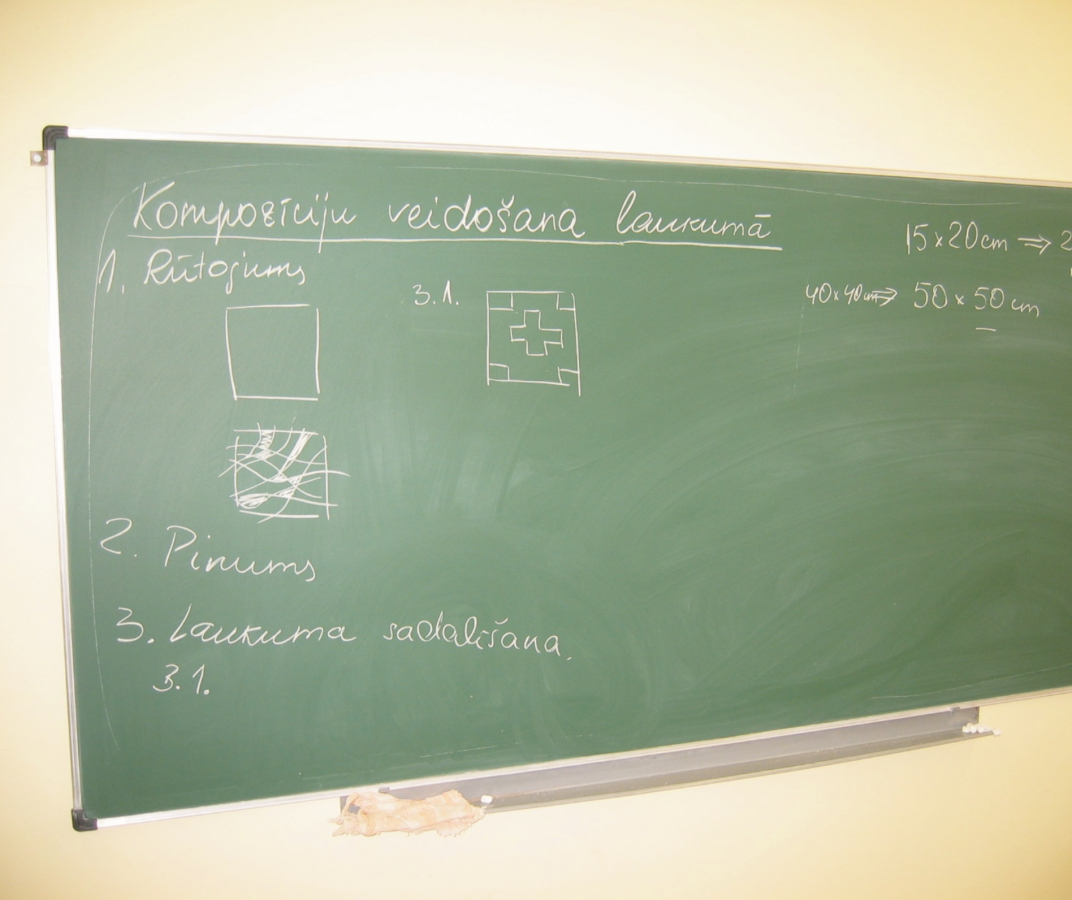 Kompozīciju veidošana laukumā
1. Rūtojums
3.1.
15 x 20 cm ⇒ 2
40 x 40 cm ⇒ 50 x 50 cm
2. Pinums
3. Laukuma sadalīšana.
3.1.